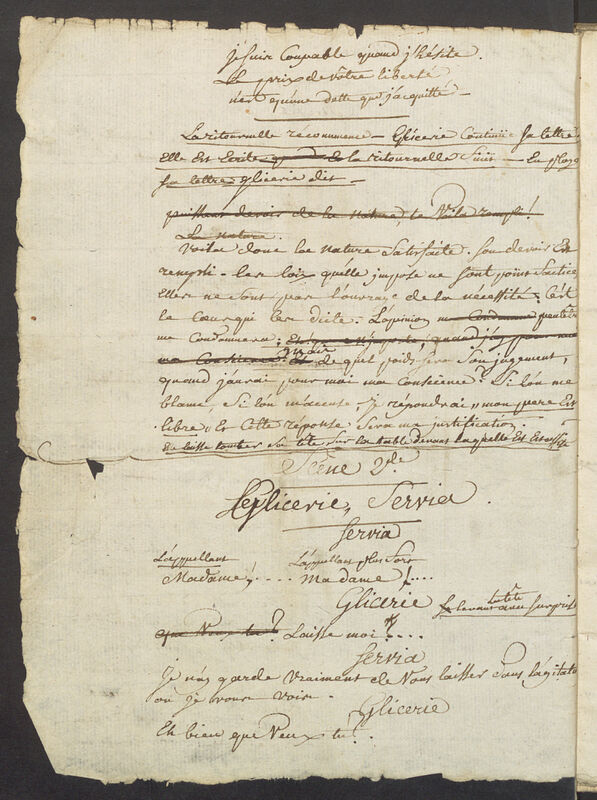 je suis Coupable quand j'hésite.
Le prix de vôtre liberté
n'est qu'une dette que j'acquitte —
La ritournelle recommence — Glicerie Continue sa lettre
Elle Est Ecrite la ritournelle finit — En ploya
sa lettre glicerie dit —
puissant devoir de la nature, te Voila rempli!
La nature.
Voila donc la nature Satisfaite. Son devoir Est
rempli. les loix qu'elle impose ne sont point factice
Elles ne sont pas l'ouvrage de la nécessité: C'est
le Cœur qui les dicte. L'opinion me Condamne peut être
me Condamnera;
ma Conscience mais de quel poids sera Son jugement,
quand j'aurai pour moi ma Conscience? Si l'on me
blame, Si l'on m'accuse, je répondrai, mon pere Est
libre, Et Cette réponse Sera ma justification.
Se laisse tomber Sa tête Sur la table devant laquelle Est Est assise
Scene 2de
Glicerie, Servia.
Servia
L'appellant L'appellant plus fort
Madame!.... Madame!....
Glicerie Se levant tête avec surprise
que Veux tu? Laisse moi?....
Servia
Je n'ai garde vraiment de Vous laisser dans l'agitati
ou je vous vois.
Glicerie
Eh bien que Veux tu?